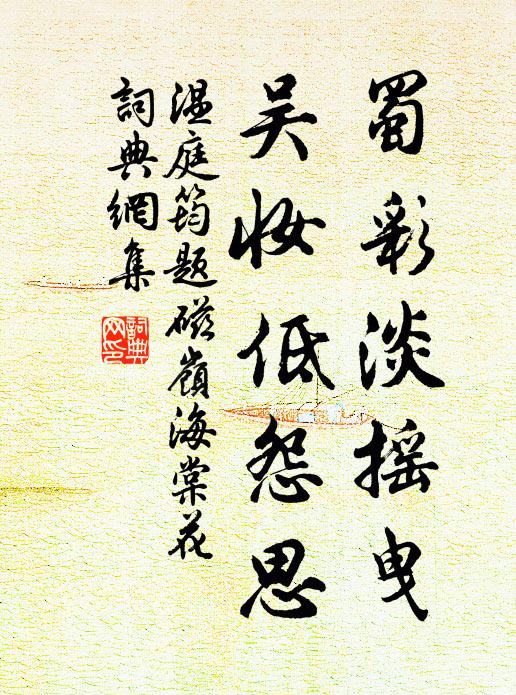 蜀彩淡摇曳
吴妆低怨思
温庭筠题磁嶺海棠花
詞典網集
詞典網印